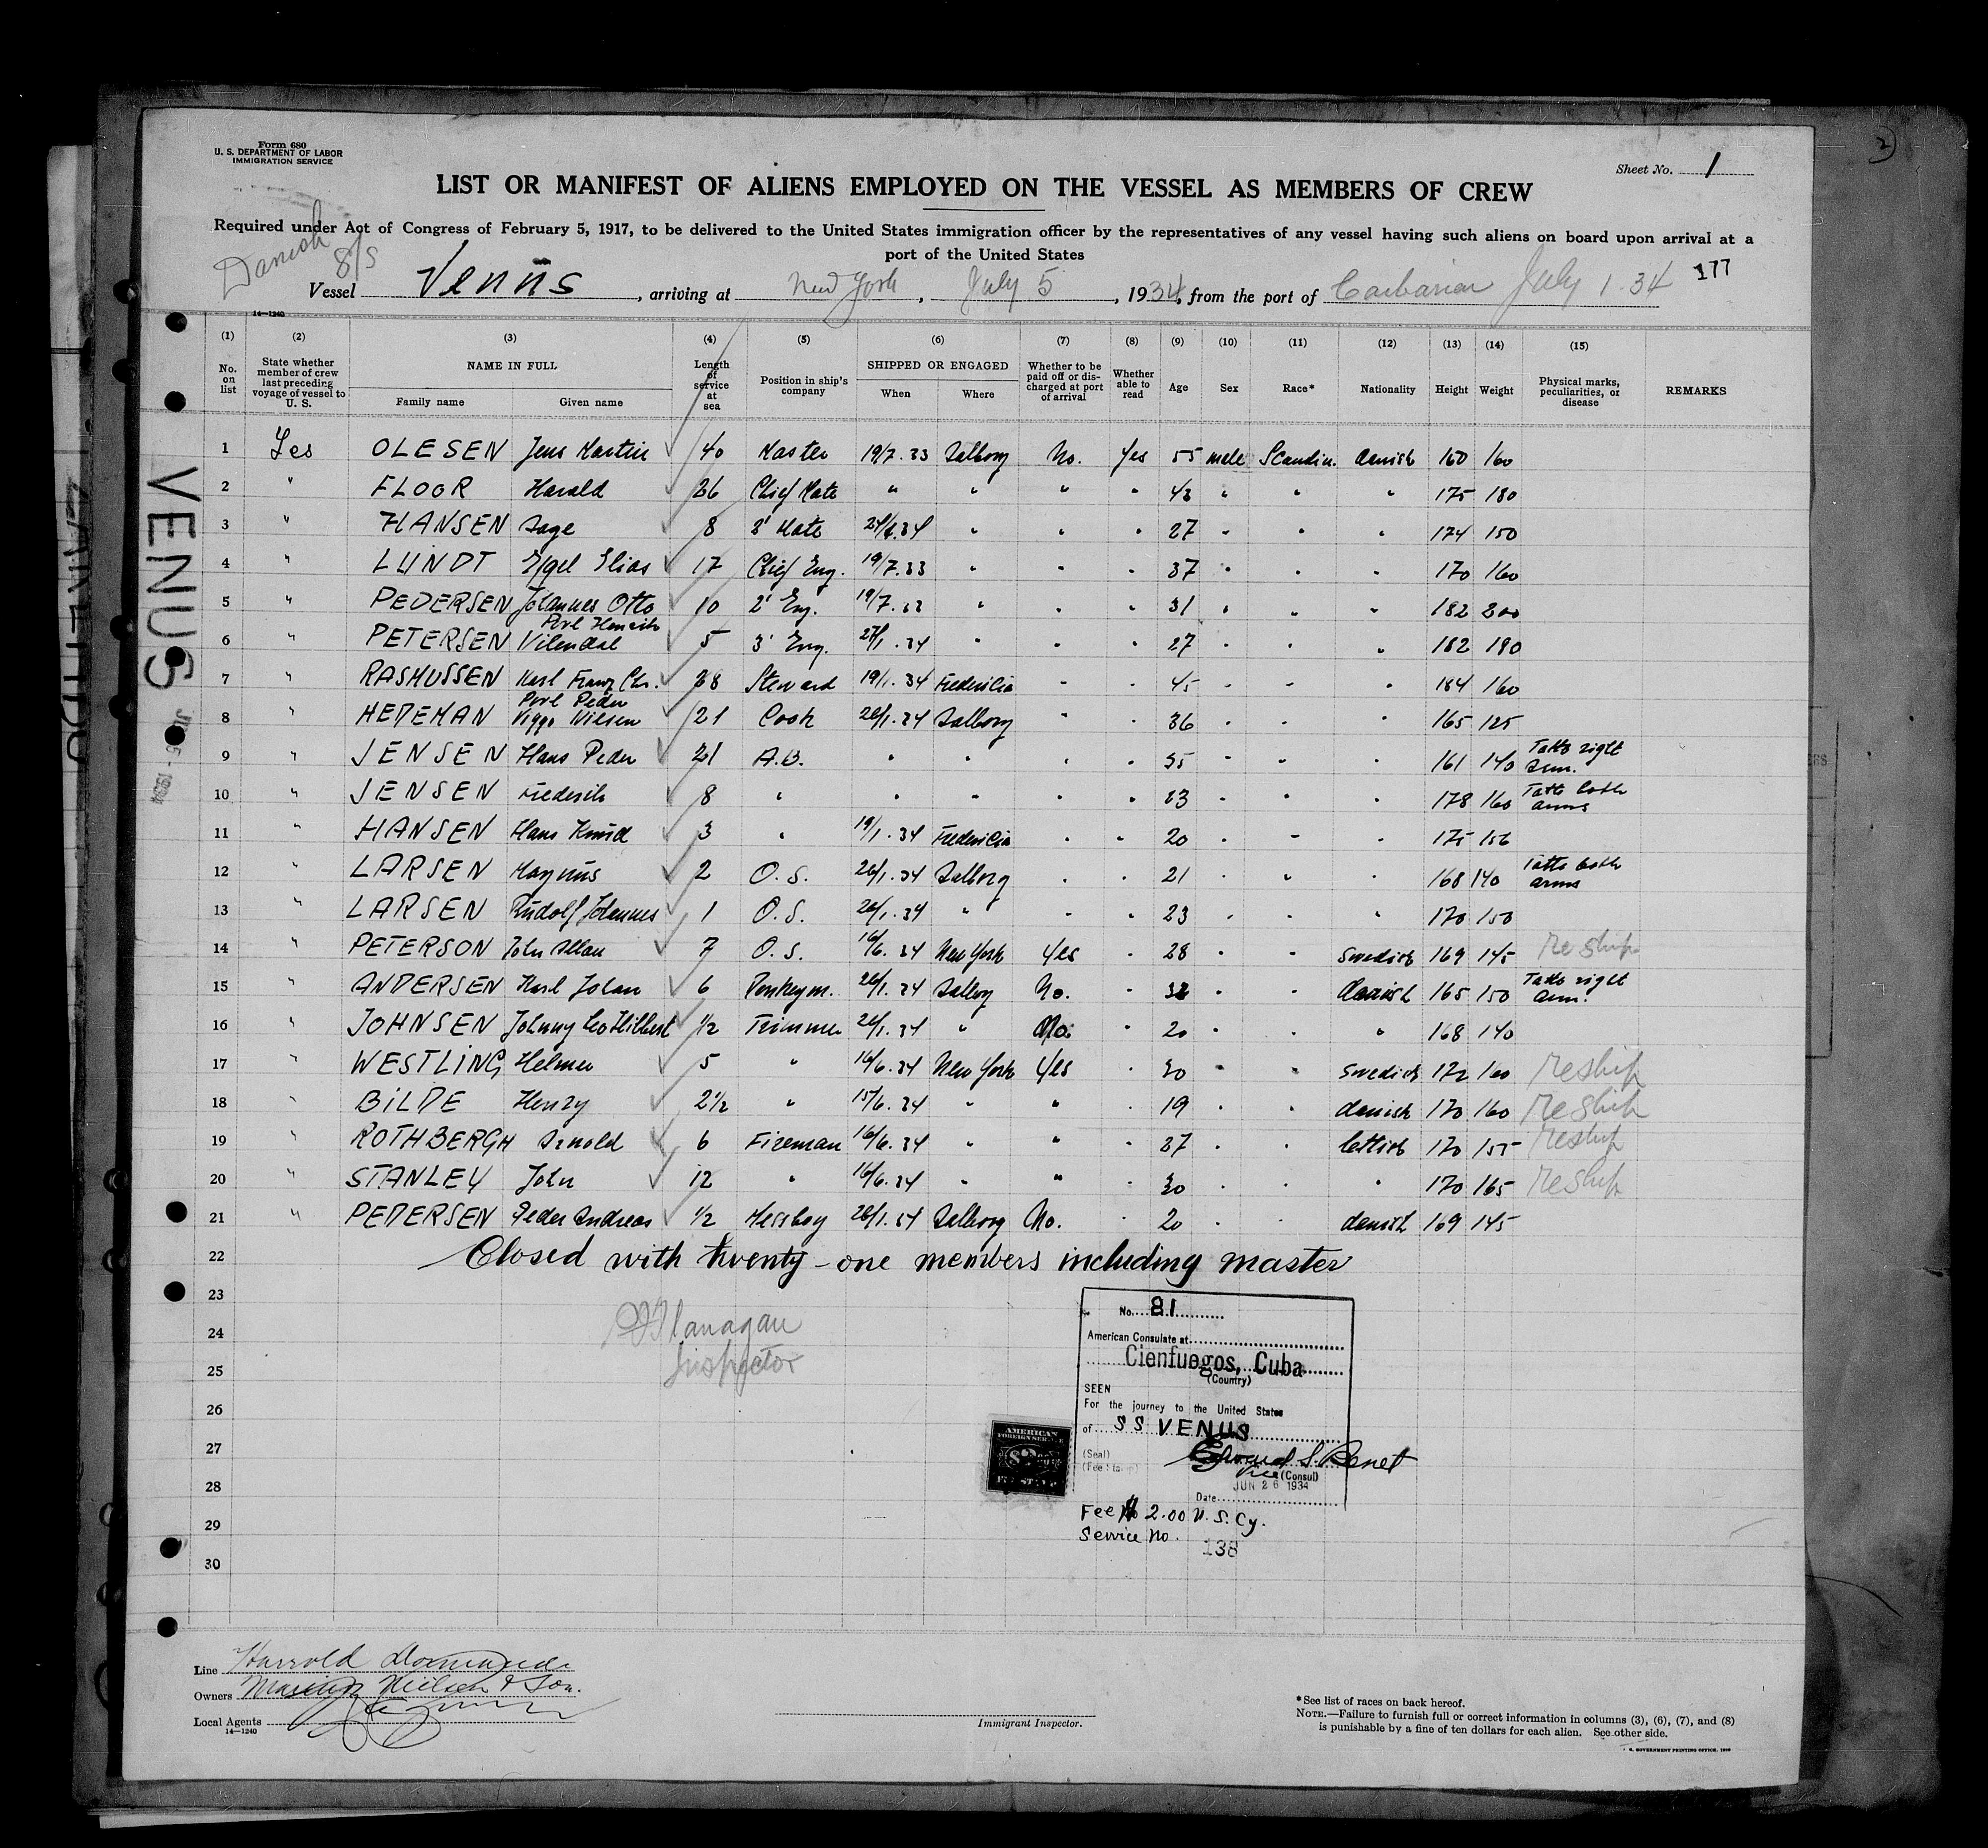 Form 680
U. S. DEPARTMENT OF LABOR
IMMIGRATION SERVICE
Sheet No. 1
2
LIST OR MANIFEST OF ALIENS EMPLOYED ON THE VESSEL AS MEMBERS OF CREW
Required under Act of Congress of February 5, 1917, to be delivered to the United States immigration officer by the representatives of any vessel having such aliens on board upon arrival at a
port of the United States
Danish S/S
Vessel Venus, arriving at New York, July 5, 1934, from the port of Caibarien July 1 · 34 177
14—1240
(1) (2) (3) (4) (5) (6) (7) (8) (9) (10) (11) (12) (13) (14) (15)
No. on list State whether member of crew last preceding voyage of vessel to U. S. NAME IN FULL Family name Given name Length of service at sea Position in ship's company SHIPPED OR ENGAGED When Where Whether to be paid off or discharged at port of arrival Whether able to read Age Sex Race* Nationality Height Weight Physical marks, peculiarities, or disease REMARKS
1 Yes OLESEN Jens Martin 40 Master 19/7.33 Aalborg No. Yes 55 male Scandin. danish 160 160
2 " FLOOR Harald 26 Chief Mate " " " " 43 " " " 175 180
3 " HANSEN Aage 8 2' Mate 24/4.34 " " " 27 " " " 174 150
4 " LUNDT Ejgel Elias 17 Chief Eng. 19/7.33 " " " 37 " " " 170 160
5 " PEDERSEN Johannes Otto 10 2' Eng. 19/7.33 " " " 31 " " " 182 200
6 " PETERSEN Povl Henrik Vilendal 5 3' Eng. 27/1.34 " " " 27 " " " 182 190
7 " RASMUSSEN Karl Franz Chr. 28 Steward 19/1.34 Fredericia " " 45 " " " 184 160
8 " HEDEMAN Povl Peder Viggo Nilsen 21 Cook 26/1.34 Aalborg " " 36 " " " 165 125
9 " JENSEN Hans Peder 21 A.B. " " " " 35 " " " 161 140 Tatto right arm.
10 " JENSEN Frederik 8 " " " " " 23 " " " 178 160 Tatto both arms
11 " HANSEN Hans Knud 3 " 19/1.34 Fredericia " " 20 " " " 175 156
12 " LARSEN Magnus 2 O.S. 26/1.34 Aalborg " " 21 " " " 168 140 Tatto both arms
13 " LARSEN Rudolf Johannes 1 O.S. 26/1.34 " " " 23 " " " 170 150
14 " PETERSON John Allan 7 O.S. 16/6.34 New York Yes " 28 " " swedish 169 145 reship
15 " ANDERSEN Karl Johan 6 Donkeym. 26/1.34 Aalborg No. " 32 " " danish 165 150 Tatto right arm.
16 " JOHNSEN Johnny Leo Hilbert 1/2 Trimmer 26/1.34 " No. " 20 " " " 168 140
17 " WESTLING Helmer 5 " 16/6.34 New York Yes " 30 " " swedish 172 160 reship
18 " BILDE Henry 2 1/2 " 15/6.34 " " " 19 " " danish 170 160 reship
19 " ROTHBERGH Arnold 6 Fireman 16/6.34 " " " 27 " " lettish 170 155 reship
20 " STANLEY John 12 " 16/6.34 " " " 30 " " " 170 165 reship
21 " PEDERSEN Peder Andreas 1/2 Messboy 26/1.34 Aalborg No. " 20 " " danish 169 145
22 Closed with twenty-one members including master
23
24 Flanagan
25 Inspector
26
27
28
29
30
VENUS
JUL 5 - 1934
No. 81
American Consulate at
Cienfuegos, Cuba
(Country)
SEEN
For the journey to the United States
of SS VENUS
(Seal)
(Fee Stamp)
Edward S. Benet
Vice (Consul)
JUN 26 1934
Date
AMERICAN
FOREIGN SERVICE
$2
FEE STAMP
Fee $ 2.00 U.S. Cy.
Service No. 138
Line Harrold
Owners Nielsen & Son.
Local Agents
14—1240
Immigrant Inspector.
*See list of races on back hereof.
NOTE.—Failure to furnish full or correct information in columns (3), (6), (7), and (8)
is punishable by a fine of ten dollars for each alien. See other side.
U. S. GOVERNMENT PRINTING OFFICE